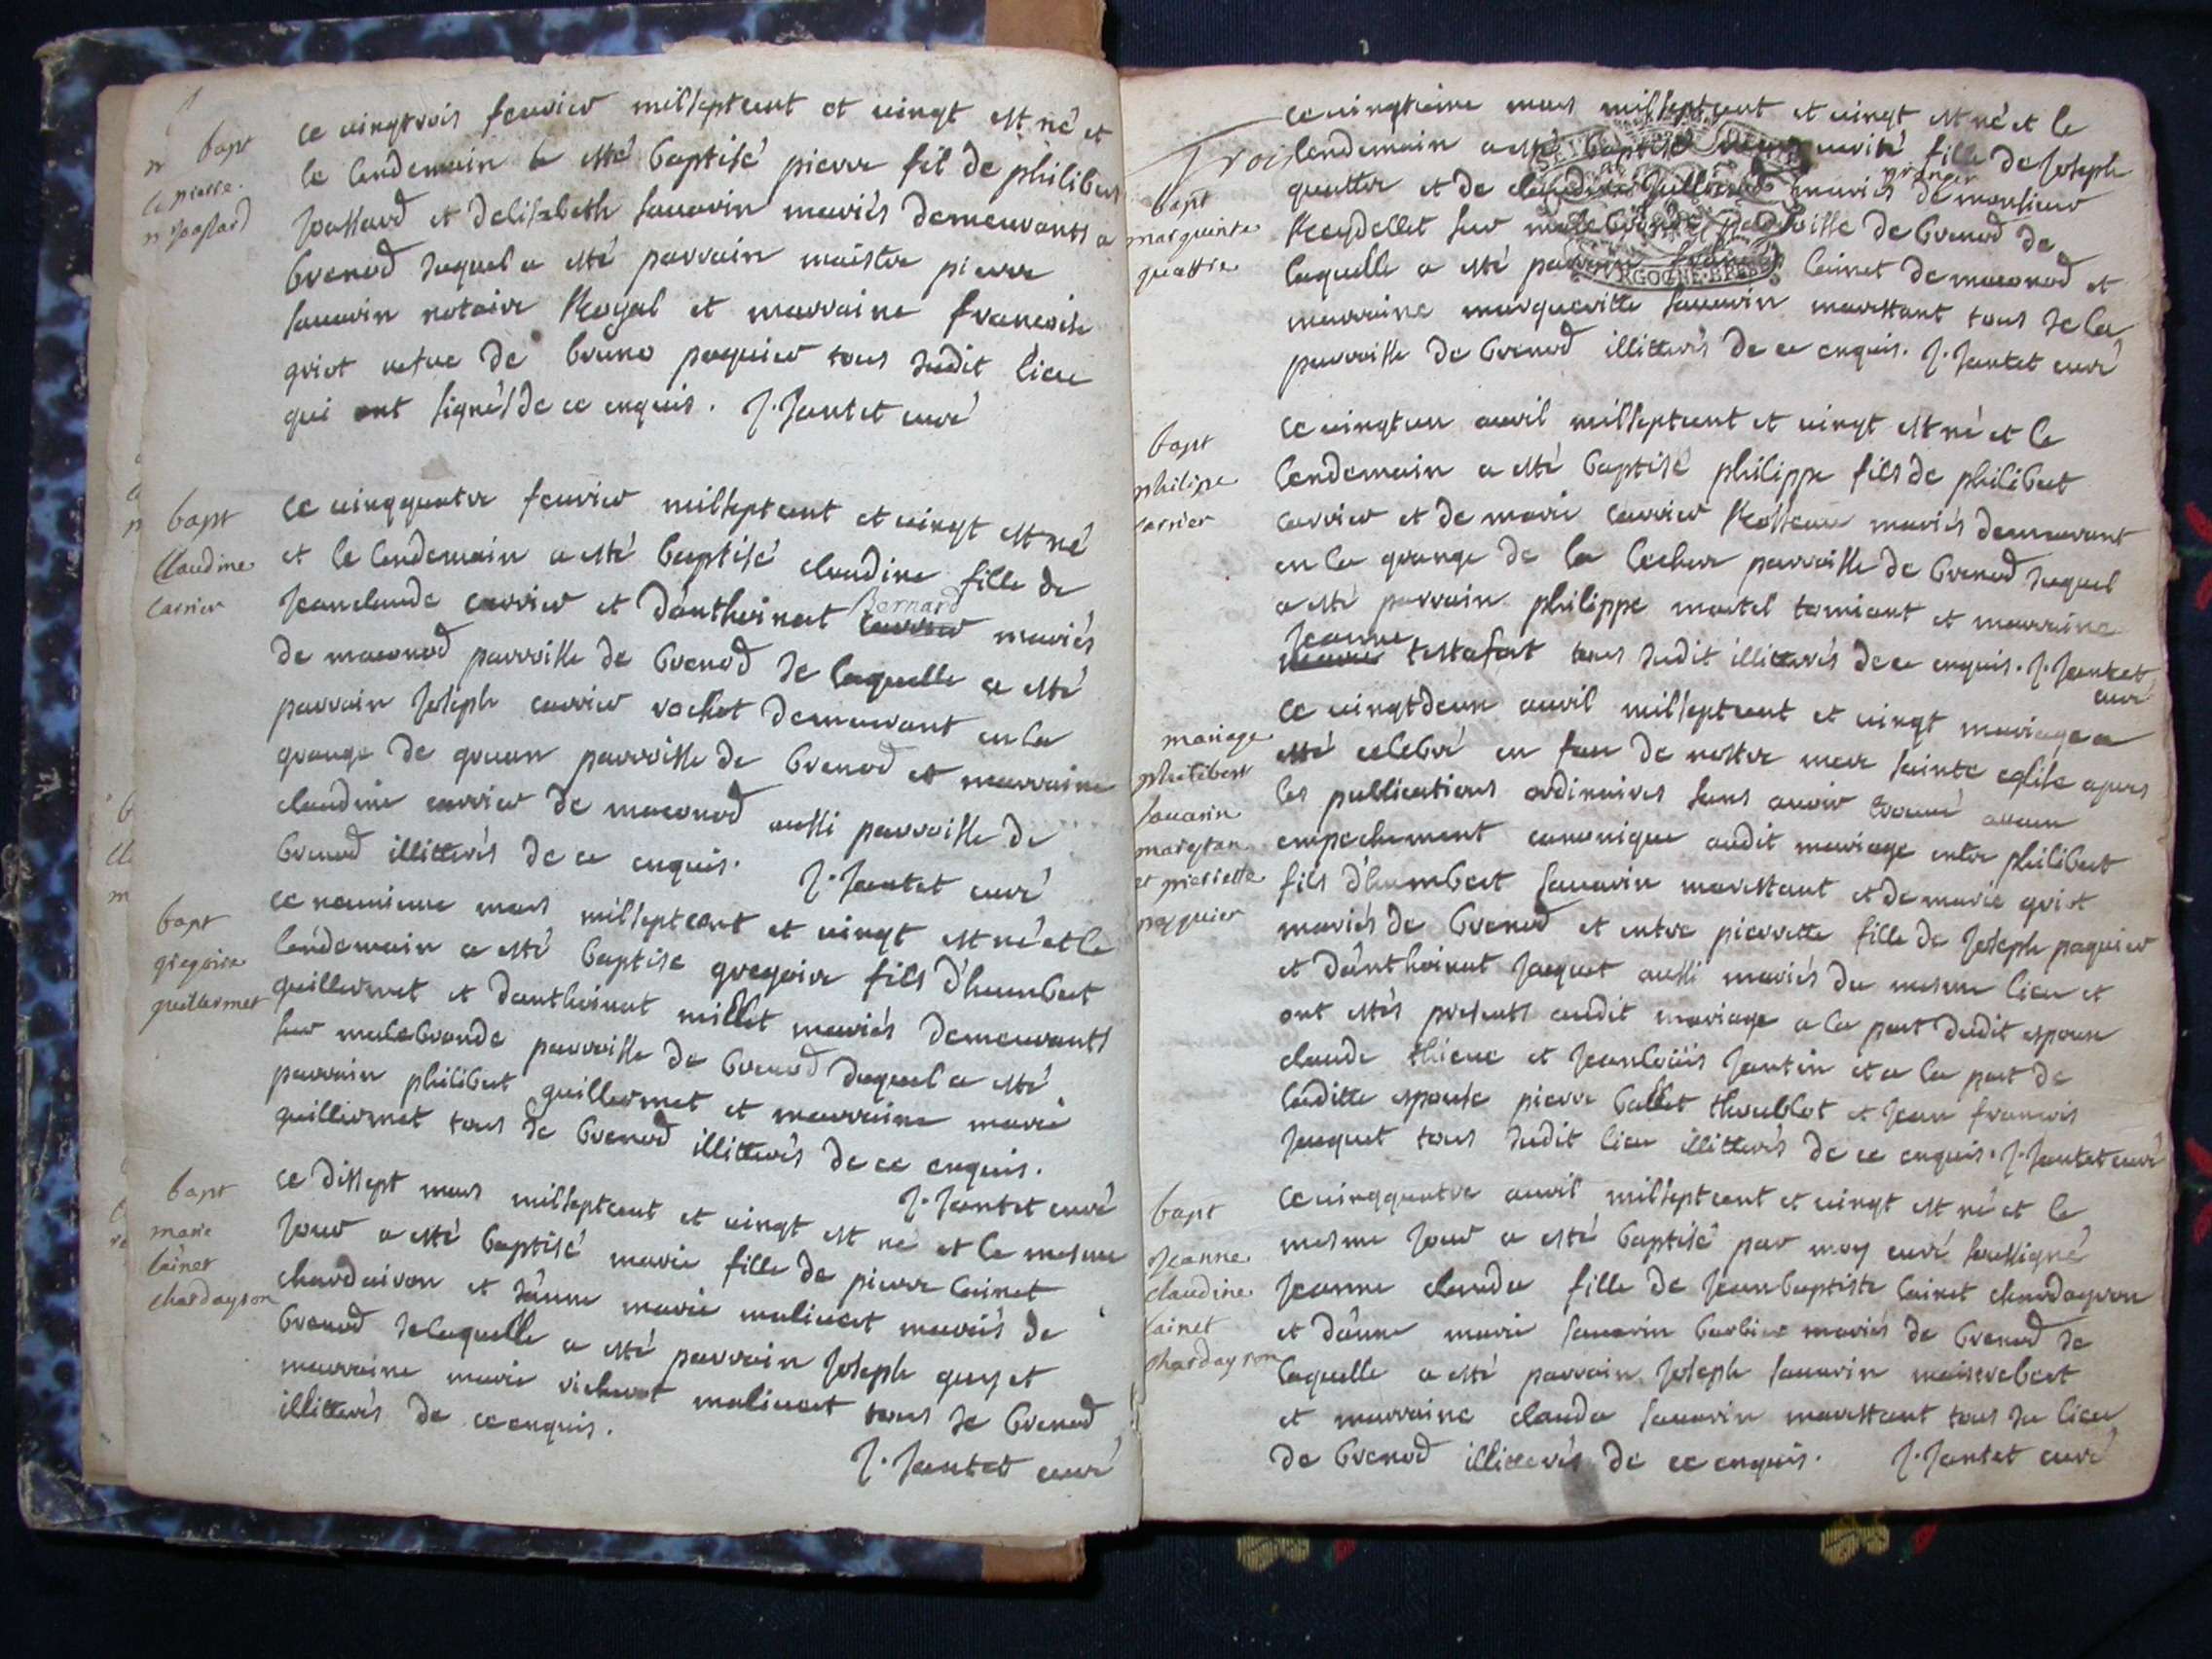 bapt
pierre
Joassard
ce vingtrois feuvier millseptcent et vingt est né et
le lendemain a esté baptisé pierre fil de philibert
Joassard et delisabeth sauarin mariés demeurants a
brenod duquel a esté parrain maistre pierre
sauarin notaire Royal et marraine francoise
griot vefue de bruno paquier tous dudit lieu
qui ont signés de ce enquis. J. Jantet curé
bapt
Claudine
Carrier
ce vingquatre feuvier millseptcent et vingt est né
et le lendemain a esté baptisé claudine fille de
Jeanclaude carrier et d'anthoinet bernard mariés
de maconod parroisse de brenod de laquelle a esté
parrain Joseph carrier rochet demeurant en la
grange de gruan parroisse de brenod et marraine
claudine carrier de maconod aussi parroisse de
brenod illitterés de ce enquis. J. Jantet curé
bapt
gregoire
guillermet
ce neuuieme mars millseptcent et vingt est né et le
lendemain a esté baptise gregoire fils d'humbert
guillermet et danthoinat millet mariés demeurants
sur malebronde parroisse de brenod duquel a esté
parrain philibert guillermet et marraine marie
guillermet tous de brenod illitterés de ce enquis.
J. Jantet curé
bapt
marie
lainet
chardayron
ce dissept mars millseptcent et vingt est né et le mesme
Jour a esté baptisé marie fille de pierre lainet
chardairon et d'anne marie maliuert mariés de
brenod de laquelle a esté parrain Joseph guy et
marraine marie vichard maliuert tous de brenod
illitterés de ce enquis.
J. Jantet curé
Trois
bapt
marguerite
quattre
ce vingtieme mars millseptcent et vingt est né et le
lendemain a esté baptisé marguerite fille de Joseph
quattre et de claudine Jullierod mariés granger de monsieur
Reydellet sur malebronde parroisse de brenod de
laquelle a esté parrain lainet de maconod et
marraine margueritte sauarin marestant tous de la
parroisse de brenod illitterés de ce enquis. J. Jantet curé
bapt
philipe
carrier
ce vingtun auril millseptcent et vingt est né et le
lendemain a esté baptisé philippe fils de philibert
carrier et de marie carrier mariés demeurant
en la grange de la lechere parroisse de brenod duquel
a esté parrain philippe martel et marraine
Jeanne testafort tous dudit illitterés de ce enquis. J. Jantet
curé
mariage
philibert
sauarin
marestan
et pierrette
paquier
ce vingtdeux auril millseptcent et vingt mariage a
esté celebré en face de nostre mere sainte eglise apres
les publications ordinaires sans auoir trouué aucun
empechement canonique audit mariage entre philibert
fils d'humbert sauarin marestant et de marie griot
mariés de brenod et entre pierrette fille de Joseph paquier
et d'anthoinat Jacquet aussi mariés du mesme lieu et
ont estés presents audit mariage a la part dudit espoux
claude thieuc et Jeanloüis Jantin et a la part de
laditte espouse pierre ballet thoublot et Jean francois
Jacquet tous dudit lieu illitterés de ce enquis. J. Jantet curé
bapt
Jeanne
claudine
lainet
chardayron
ce vingquatre auril millseptcent et vingt est né et le
mesme Jour a esté baptisé par moy curé soussigné
Jeanne clauda fille de Jeanbaptiste lainet chardayron
et d'anne marie sauarin barbier mariés de brenod de
laquelle a esté parrain Joseph sauarin
et marraine clauda sauarin marestant tous du lieu
de brenod illitterés de ce enquis. J. Jantet curé